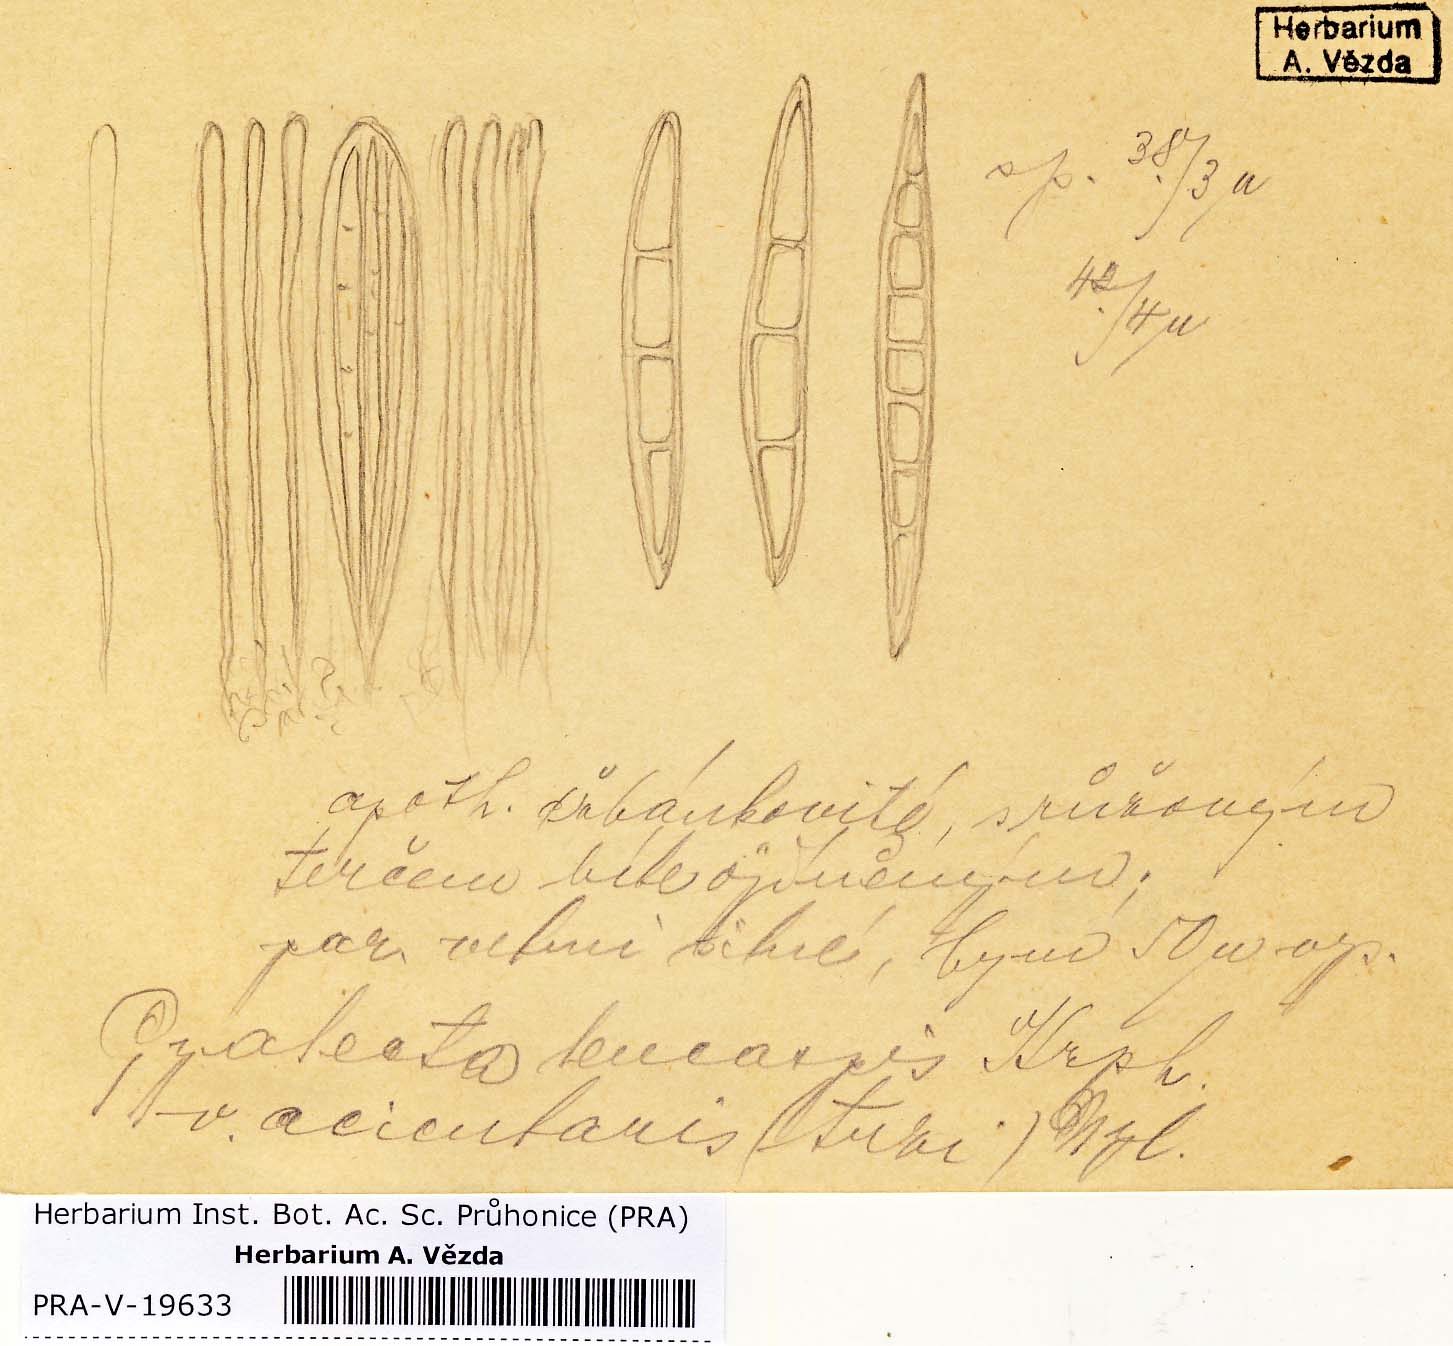 Herbarium
A. Vězda
sp. 38/3 µ
42/4 µ
apoth. čbánkovité, s růžovým
terčem bíle ojíněným;
par. velmi četné, hym 50 µ vys.
Gyalecta leucaspis Krph.
v. acicularis (Anzi) Nyl.
Herbarium Inst. Bot. Ac. Sc. Průhonice (PRA)
Herbarium A. Vězda
PRA-V-19633